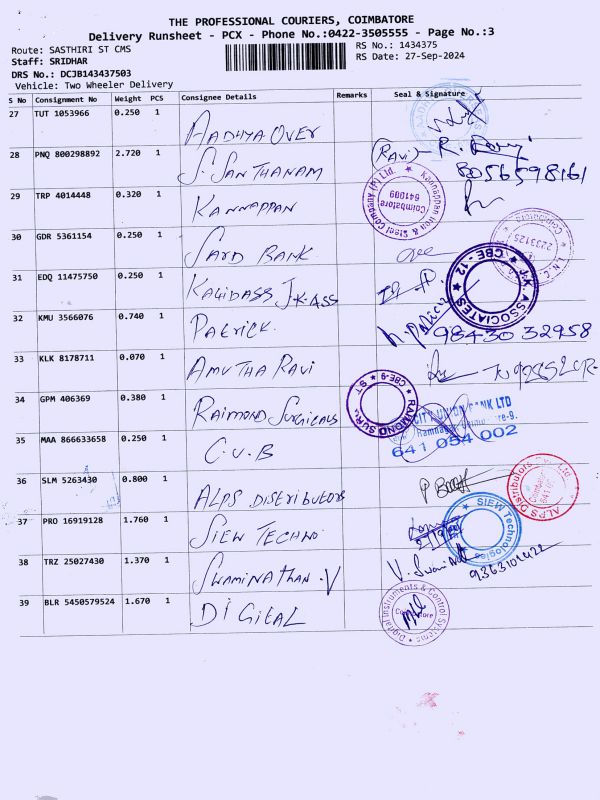 THE PROFESSIONAL COURIERS, COIMBATORE
Delivery Runsheet - PCX - Phone No.:0422-3505555 - Page No.:3
Route: SASTHIRI ST CMS
RS No.: 1434375
Staff: SRIDHAR
RS Date: 27-Sep-2024
DRS No.: DCJB143437503
Vehicle: Two Wheeler Delivery
S No Consignment No Weight PCS Consignee Details Remarks Seal & Signature
27 TUT 1053966 0.250 1 AADHYA OVER
28 PNQ 800298892 2.720 1 S. SANTHANAM (RAVI) R. Ravi 8056598161
29 TRP 4014448 0.320 1 KANNAPPAN Kannappan Iron & Steel Company (P) Ltd. Coimbatore 641009
30 GDR 5361154 0.250 1 SARD BANK 2233125
31 EDQ 11475750 0.250 1 KALIDASS J.K. ASS J.K. ASSOCIATES CBE-12
32 KMU 3566076 0.740 1 PATRICK. 98430 32958
33 KLK 8178711 0.070 1 AMUTHA RAVI
34 GPM 406369 0.380 1 RAIMOND SURGICALS CBE-9
35 MAA 866633658 0.250 1 C.U.B CITY UNION BANK LTD
641 054 002
36 SLM 5263430 0.800 1 ALPS DISTRIBUTORS ALPS Distributors Ltd
37 PRO 16919128 1.760 1 SIEW TECHNO SIEW Technologies
38 TRZ 25027430 1.370 1 SWAMINATHAN.V V. Swami 9363101422
39 BLR 5450579524 1.670 1 DIGITAL Digital Instruments & Control Systems Coimbatore